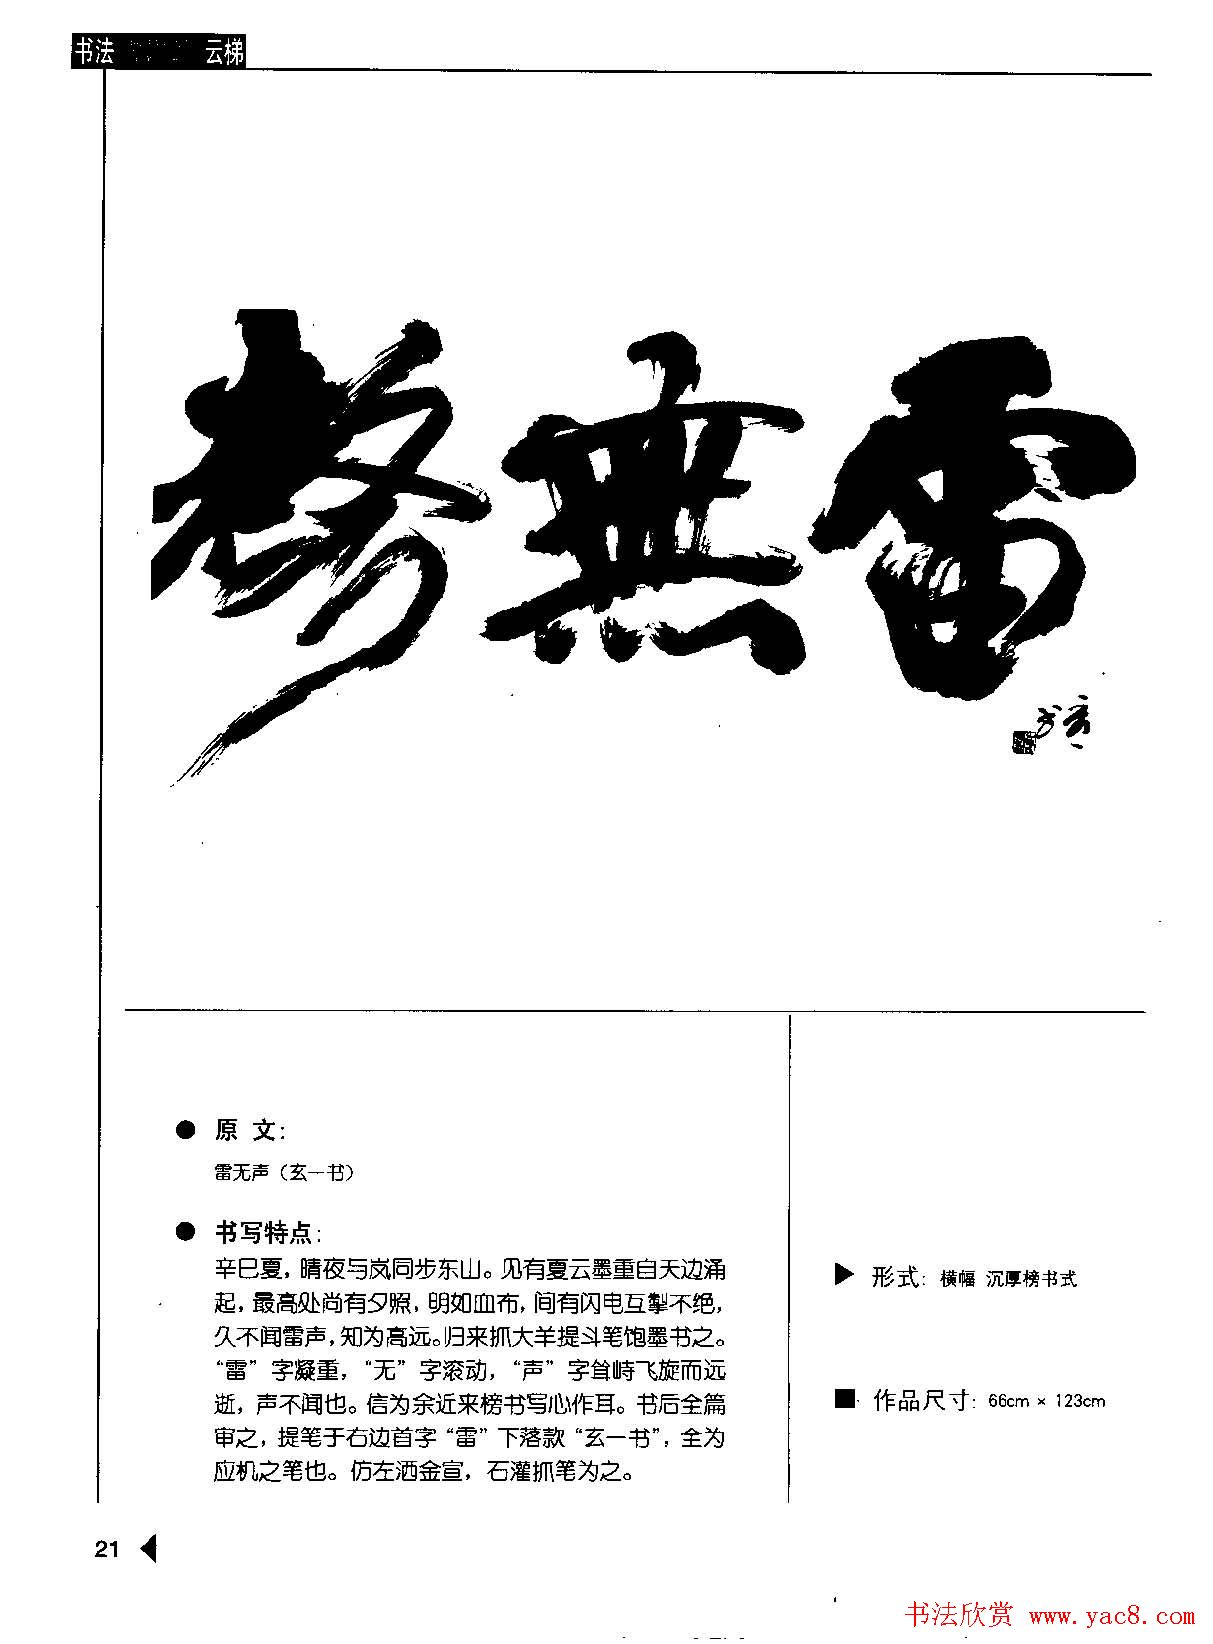 书法 云梯
雷無聲
玄一书
● 原 文：
雷无声（玄一书）
● 书写特点：
辛巳夏，晴夜与岚同步东山。见有夏云墨重自天边涌
起，最高处尚有夕照，明如血布，间有闪电互掣不绝，
久不闻雷声，知为高远。归来抓大羊提斗笔饱墨书之。
“雷”字凝重，“无”字滚动，“声”字耸峙飞旋而远
逝，声不闻也。信为余近来榜书写心作耳。书后全篇
审之，提笔于右边首字“雷”下落款“玄一书”，全为
应机之笔也。仿左洒金宣，石灌抓笔为之。
▶ 形式：横幅 沉厚榜书式
■ 作品尺寸：66cm × 123cm
21
书法欣赏 www.yac8.com